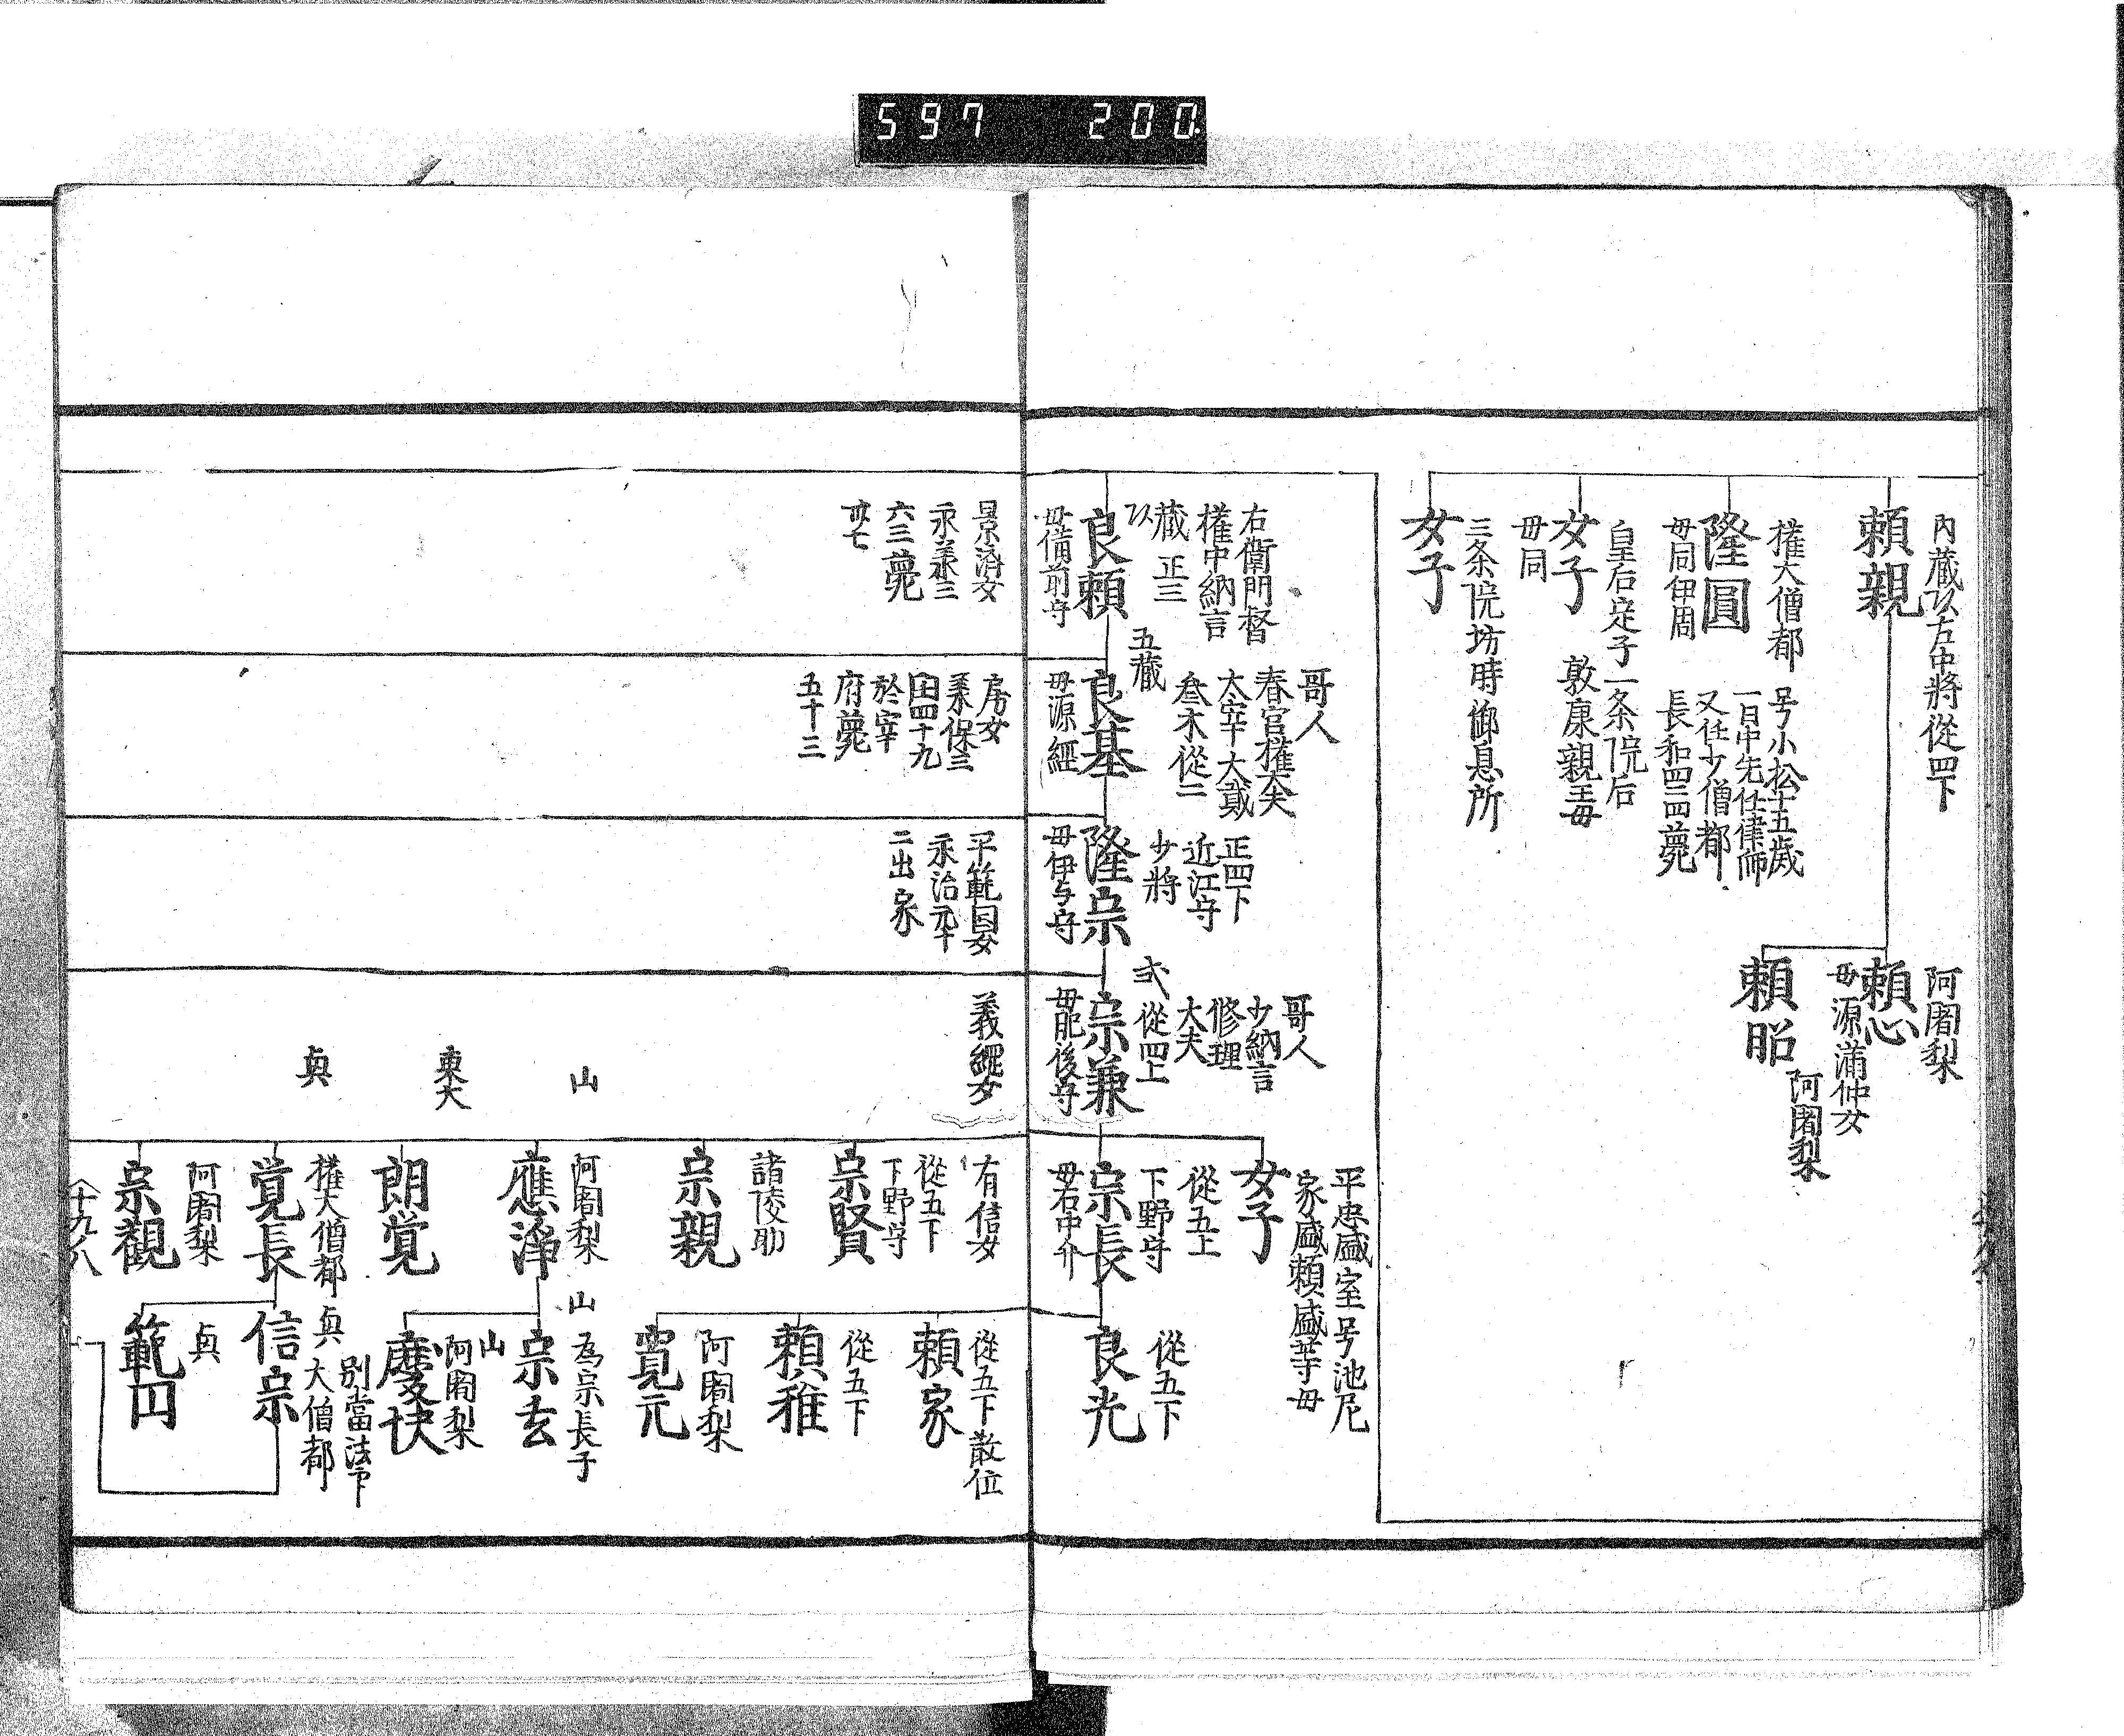 597 200
内蔵以左中将従四下
頼親
阿闍梨
頼心
母源満仲女
頼昭
阿闍梨
権大僧都
号小松十五歳
一日中先任律師
又任少僧都
長和四二四薨
隆圓
母同伊周
皇后定子一条院后
女子
敦康親王母
母同
三条院坊時御息所
女子
右衛門督
権中納言
蔵 正三
以
良頼
母備前守
景済女
永義三
六三薨
卅七
哥人
春官権大夫
太宰大貳
叁木従二
五蔵
良基
母源經
房女
義保三
閏四十九
於宰
府薨
五十二
正四下
近江守
少将
隆宗
母伊与守
平範国女
永治元十
二出家
哥人
少納言
修理
大夫
従四上
弐
宗兼
母肥後守
義綱女
平忠盛室号池尼
家盛頼盛等母
女子
従五上
下野守
宗長
母右中介
有信女
従五下
良光
従五下散位
頼家
従五下
頼稚
阿闍梨
寛元
従五下
下野守
宗賢
諸陵助
宗親
山
阿闍梨
應浄
山
為宗長子
宗玄
山
阿闍梨
慶快
東大
朗覚
興
権大僧都
覚長
興
別當法下
大僧都
信宗
興
範円
阿闍梨
宗観
十九ノ八